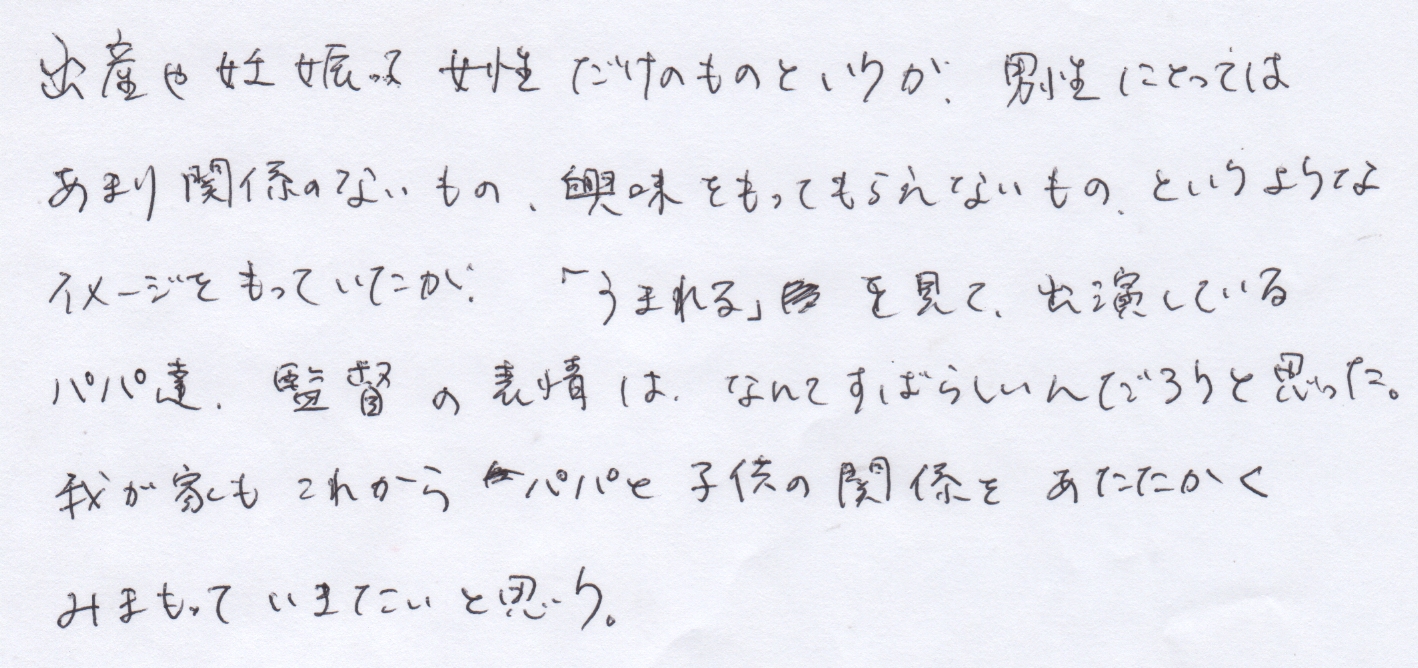 出産や妊娠って女性だけのものというか、男性にとっては
あまり関係のないもの、興味をもってもらえないもの、というような
イメージをもっていたが、「うまれる」を見て、出演している
パパ達、監督の表情は、なんてすばらしいんだろうと思った。
我が家もこれからパパと子供の関係をあたたかく
みまもっていきたいと思う。